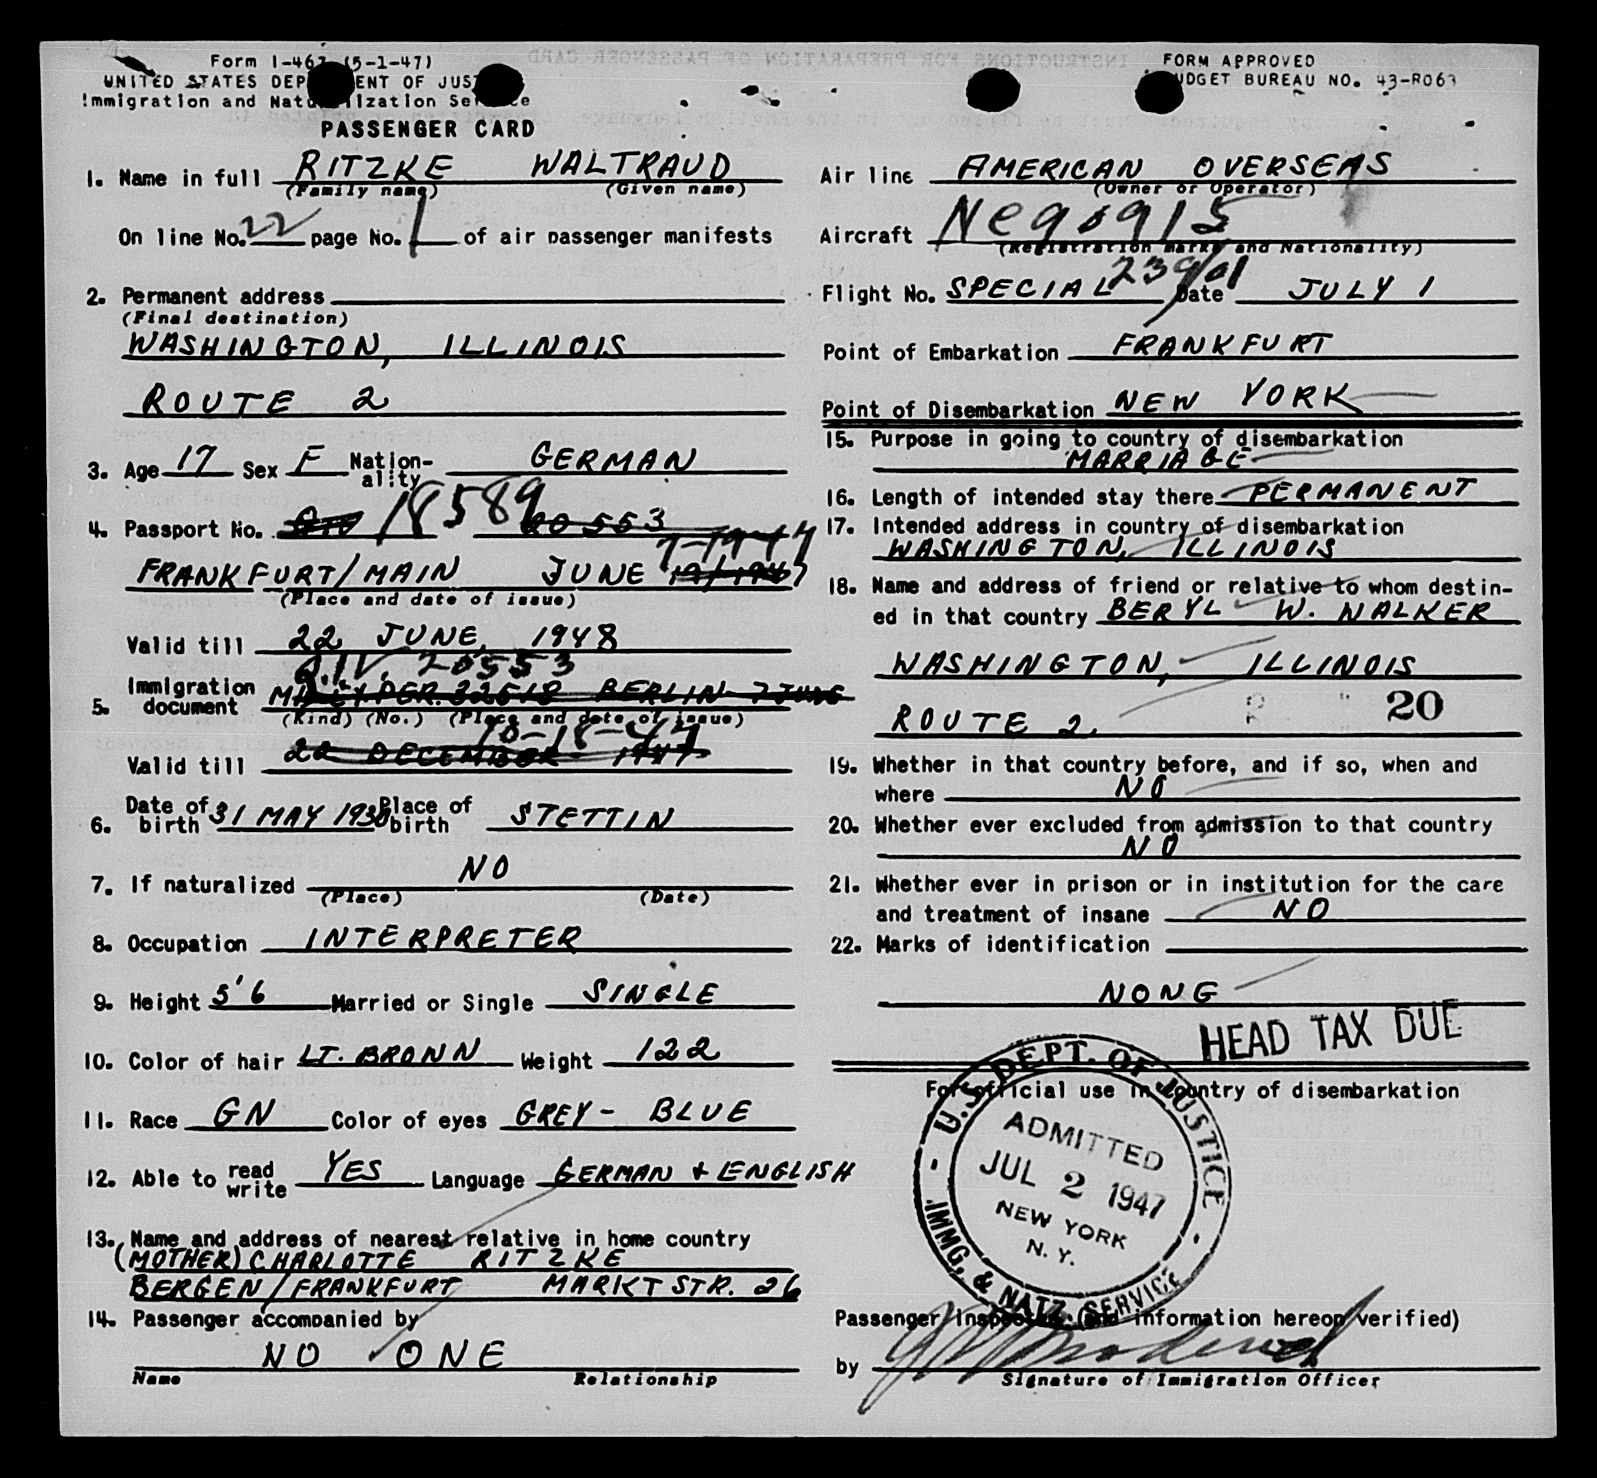 Form I-467 (5-1-47)
UNITED STATES DEP ENT OF JUS
Immigration and Natu lization Se ce
PASSENGER CARD
FORM APPROVED
UDGET BUREAU NO. 43-R063
1. Name in full RITZKE WALTRAUD
(Family name) (Given name)
On line No. 22 page No. 1 of air passenger manifests
2. Permanent address
(Final destination)
WASHINGTON, ILLINOIS
ROUTE 2
3. Age 17 Sex F Nation-ality GERMAN
4. Passport No. 18589 20553
7-1947
FRANKFURT/MAIN JUNE
(Place and date of issue)
Valid till 22 JUNE, 1948
Q.I.V. 20553
5. Immigration document BERLIN 7 JUNE
(Kind) (No.) (Place and date of issue)
10-18-47
Valid till 22 DECEMBER 1947
6. Date of birth 31 MAY 1930 Place of birth STETTIN
7. If naturalized NO
(Place) (Date)
8. Occupation INTERPRETER
9. Height 5'6 Married or Single SINGLE
10. Color of hair LT. BROWN Weight 122
11. Race GN Color of eyes GREY - BLUE
12. Able to read write YES Language GERMAN + ENGLISH
13. Name and address of nearest relative in home country
(MOTHER) CHARLOTTE RITZKE
BERGEN/FRANKFURT MARKTSTR. 26
14. Passenger accompanied by
NO ONE
Name Relationship
Air line AMERICAN OVERSEAS
(Owner or Operator)
Aircraft Nc90915
(Registration marks and Nationality)
Flight No. SPECIAL 239/01 Date JULY 1
Point of Embarkation FRANKFURT
Point of Disembarkation NEW YORK
15. Purpose in going to country of disembarkation
MARRIAGE
16. Length of intended stay there PERMANENT
17. Intended address in country of disembarkation
WASHINGTON, ILLINOIS
18. Name and address of friend or relative to whom destin-
ed in that country BERYL W. WALKER
WASHINGTON, ILLINOIS
20
ROUTE 2.
19. Whether in that country before, and if so, when and
where NO
20. Whether ever excluded from admission to that country
NO
21. Whether ever in prison or in institution for the care
and treatment of insane NO
22. Marks of identification
NONE
HEAD TAX DUE
For official use in country of disembarkation
U.S. DEPT. OF JUSTICE
ADMITTED
JUL 2 1947
NEW YORK
N. Y.
IMMG. & NATZ. SERVICE
Passenger inspected (and information hereon verified)
by
Signature of Immigration Officer